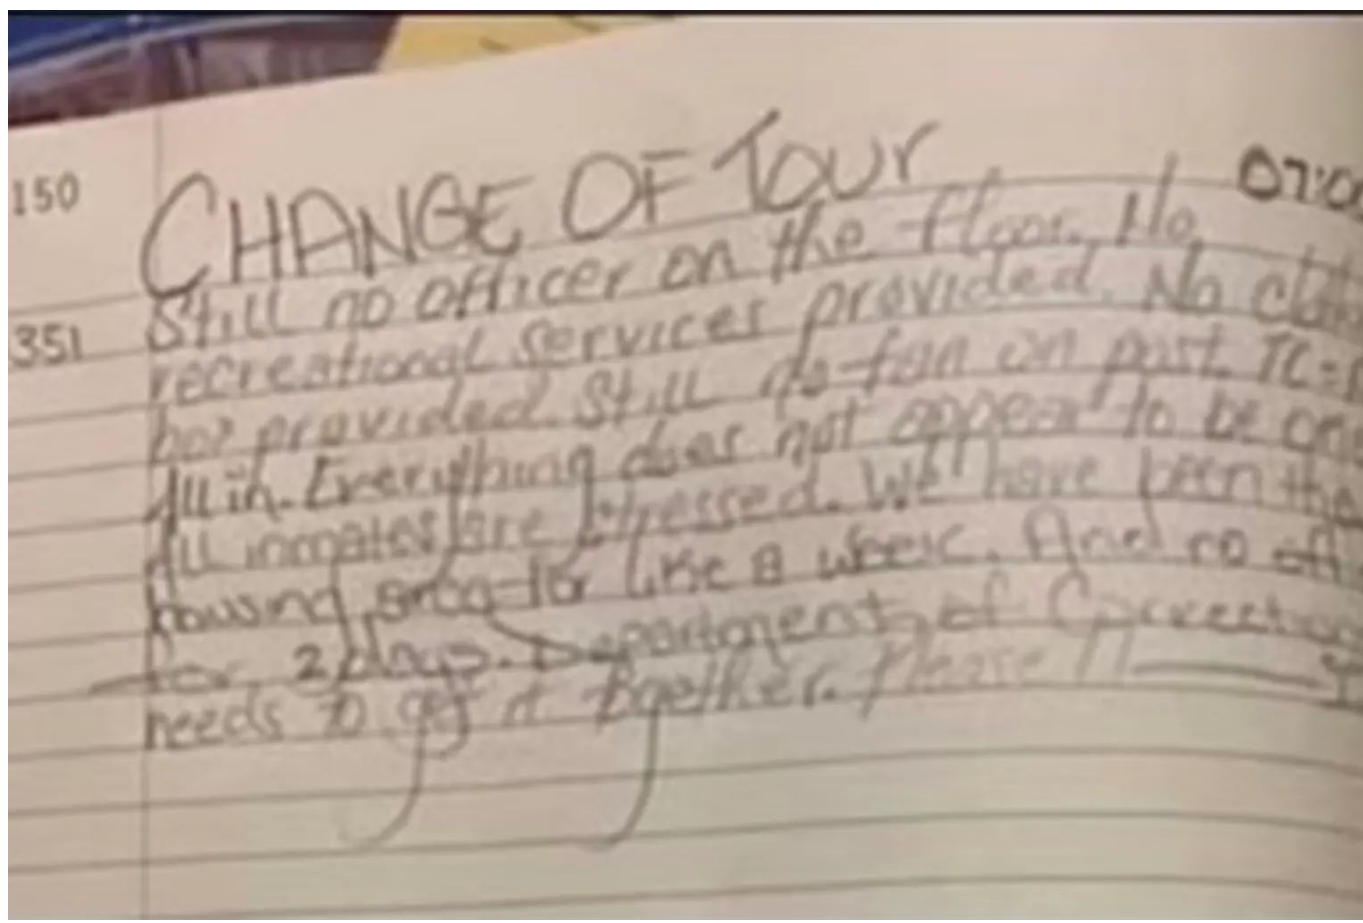 150 CHANGE OF TOUR 07:0
351 Still no officer on the floor. No
recreational services provided. No
not provided. Still no fan on post. TC=
All in. Everything does not appear to be
All inmates are stressed. We have been
housing area for like a week. And no
for 2 days. Department of Correct
needs to get it together. Please !!